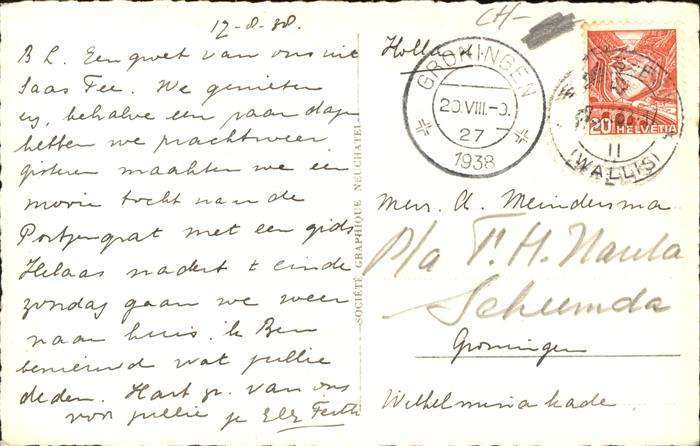 CH-
17-8-38.
B L. Een groet van ons uit
Saas Fee. We genieten
erg, behalve een paar dagen
hebben we prachtweer,
gisteren maakten we een
mooie tocht naar de
Portjengrat met een gids
Helaas nadert 't einde
zondag gaan we weer
naar huis. ik Ben
benieuwd wat jullie
deden. Hart. gr. van ons
voor jullie je Elly
SOCIÉTÉ GRAPHIQUE NEUCHATEL
Holland
GRONINGEN
20.VIII.
27
1938
20 HELVETIA
II
(WALLIS)
Mevr. A. Meindersma
p/a T. H. Nauta
Scheemda
Groningen
Wilhelminakade.